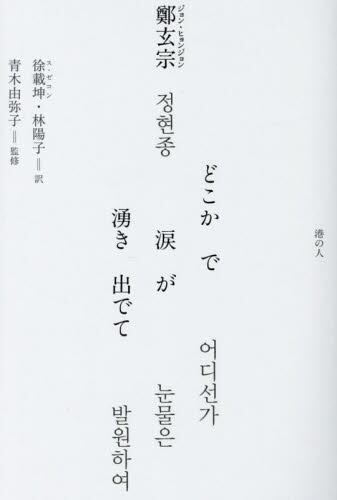 港の人
どこかで
어디선가
涙が
눈물은
湧き出でて
발원하여
鄭玄宗
ジョン・ヒョンジョン
정현종
徐載坤・林陽子=訳
ス・ゼコン
青木由弥子=監修